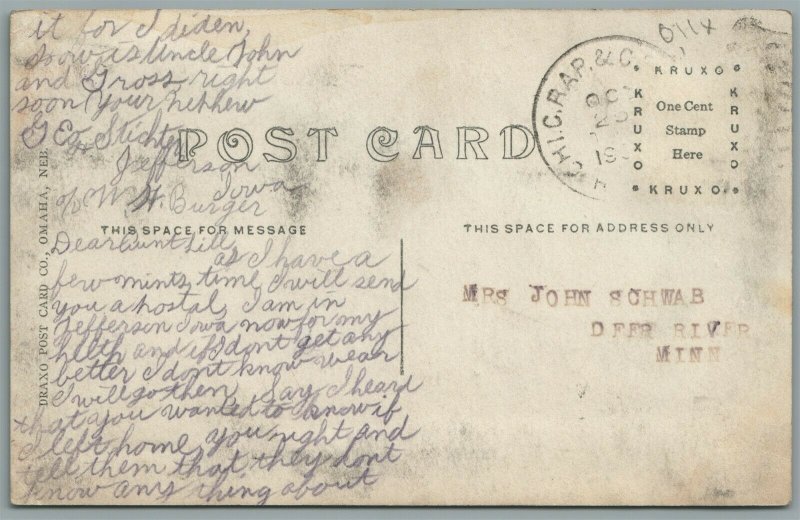 it for I diden,
how is Uncle John
and Gross right
soon your nephew
Geo Stichter
Jefferson
Iowa
c/o W H. Burger
POST CARD
THIS SPACE FOR MESSAGE
Dear aunt Lill,
as I have a
few mints time I will send
you a postal, I am in
Jefferson Iowa now for my
helth and if I dont get any
better I dont know wear
I will go then, Say I heard
that you wanted to know if
I left home, you right and
tell them that they dont
know any thing about
DRAXO POST CARD CO., OMAHA, NEB.
CHI.C.RAP.&C.
OCT
KRUXO
KRUXO
One Cent
Stamp
Here
KRUXO
KRUXO
THIS SPACE FOR ADDRESS ONLY
MRS JOHN SCHWAB
DEER RIVER
MINN